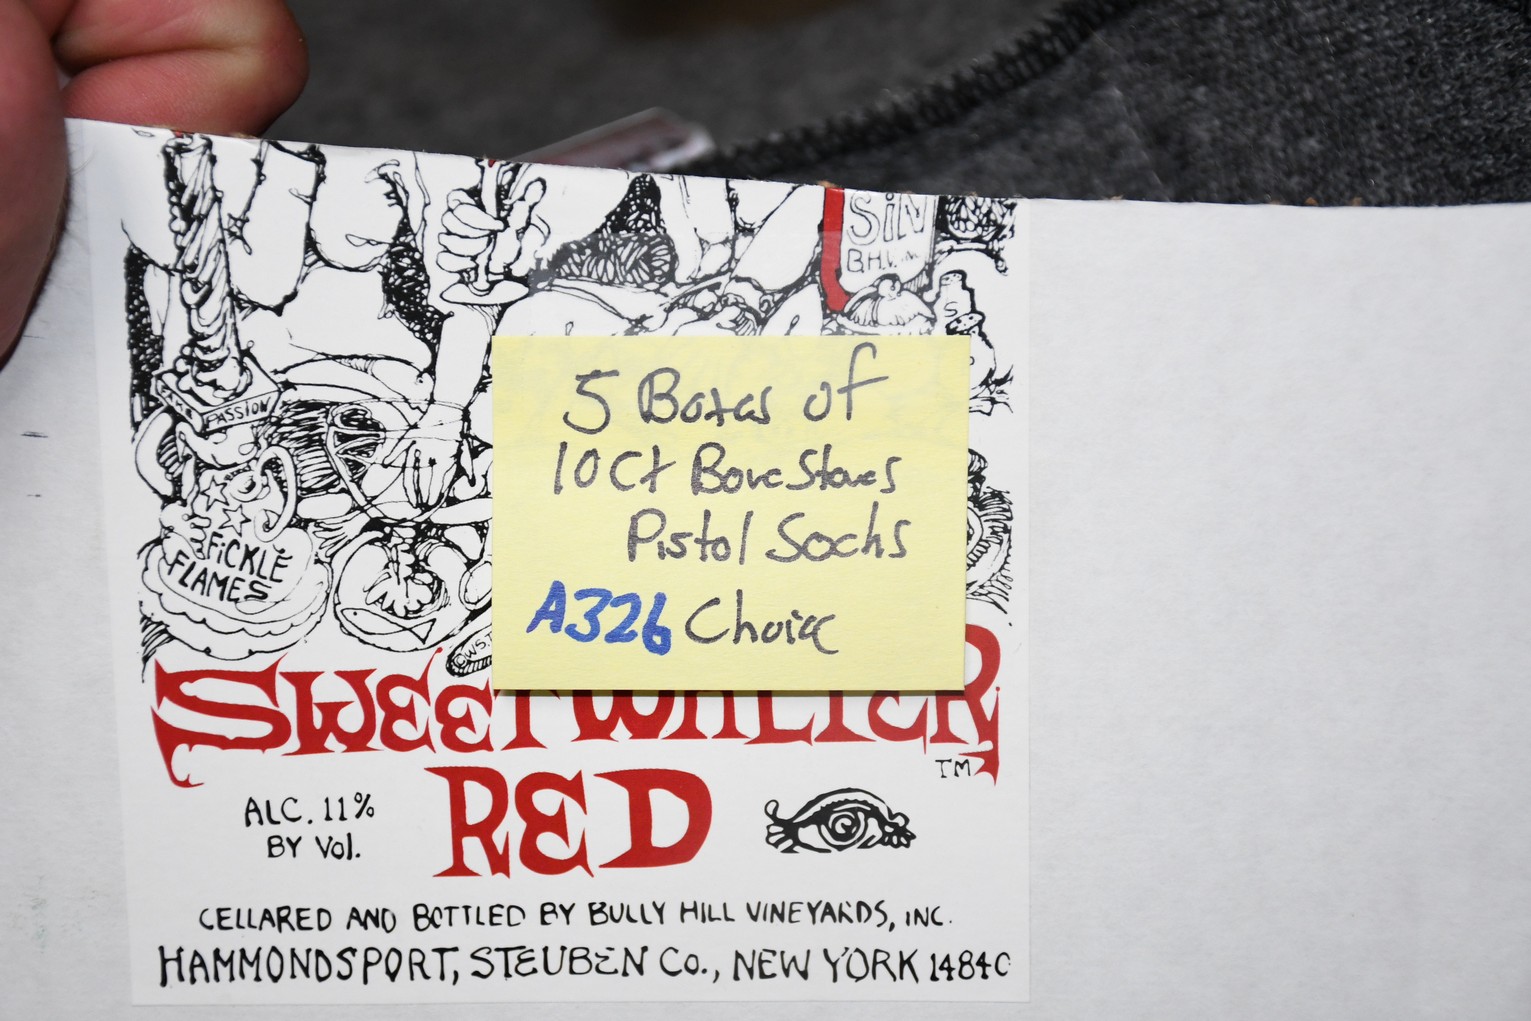 SiN
B.H.V.
THE PASSION
FiCKLE
FLAMES
5 Boxes of
10 Ct Bore Stores
Pistol Socks
A326 Choice
©WS.
SWEETWALTER
RED
TM
ALC. 11%
BY Vol.
CELLARED AND BOTTLED BY BULLY HILL VINEYARDS, INC.
HAMMONDSPORT, STEUBEN Co., NEW YORK 14840